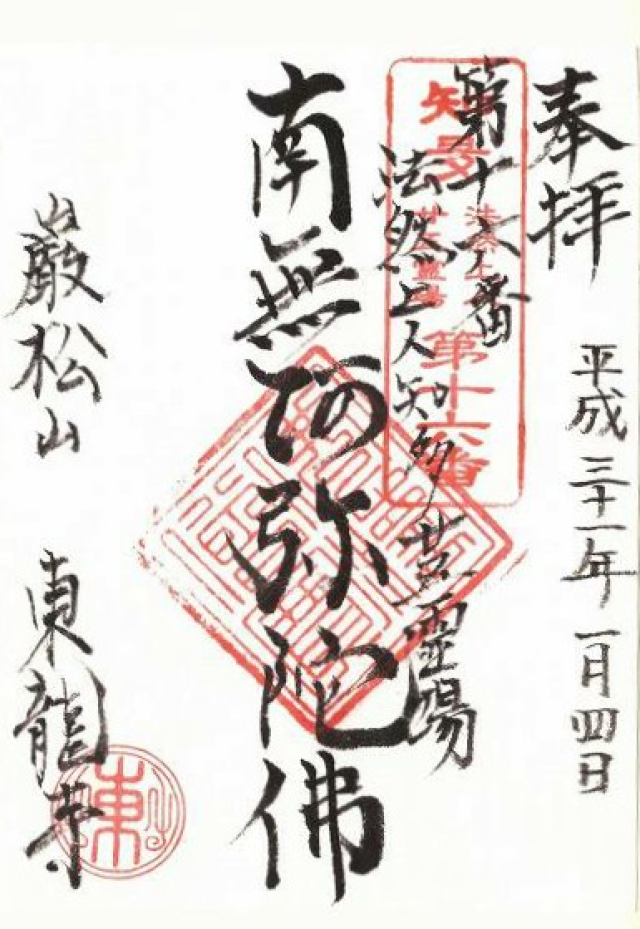 奉拝
平成三十一年一月四日
第十六番
法然上人知多廿五霊場
知多
法然上人
廿五霊場
第十六番
南無阿弥陀佛
巌松山
東龍寺
東